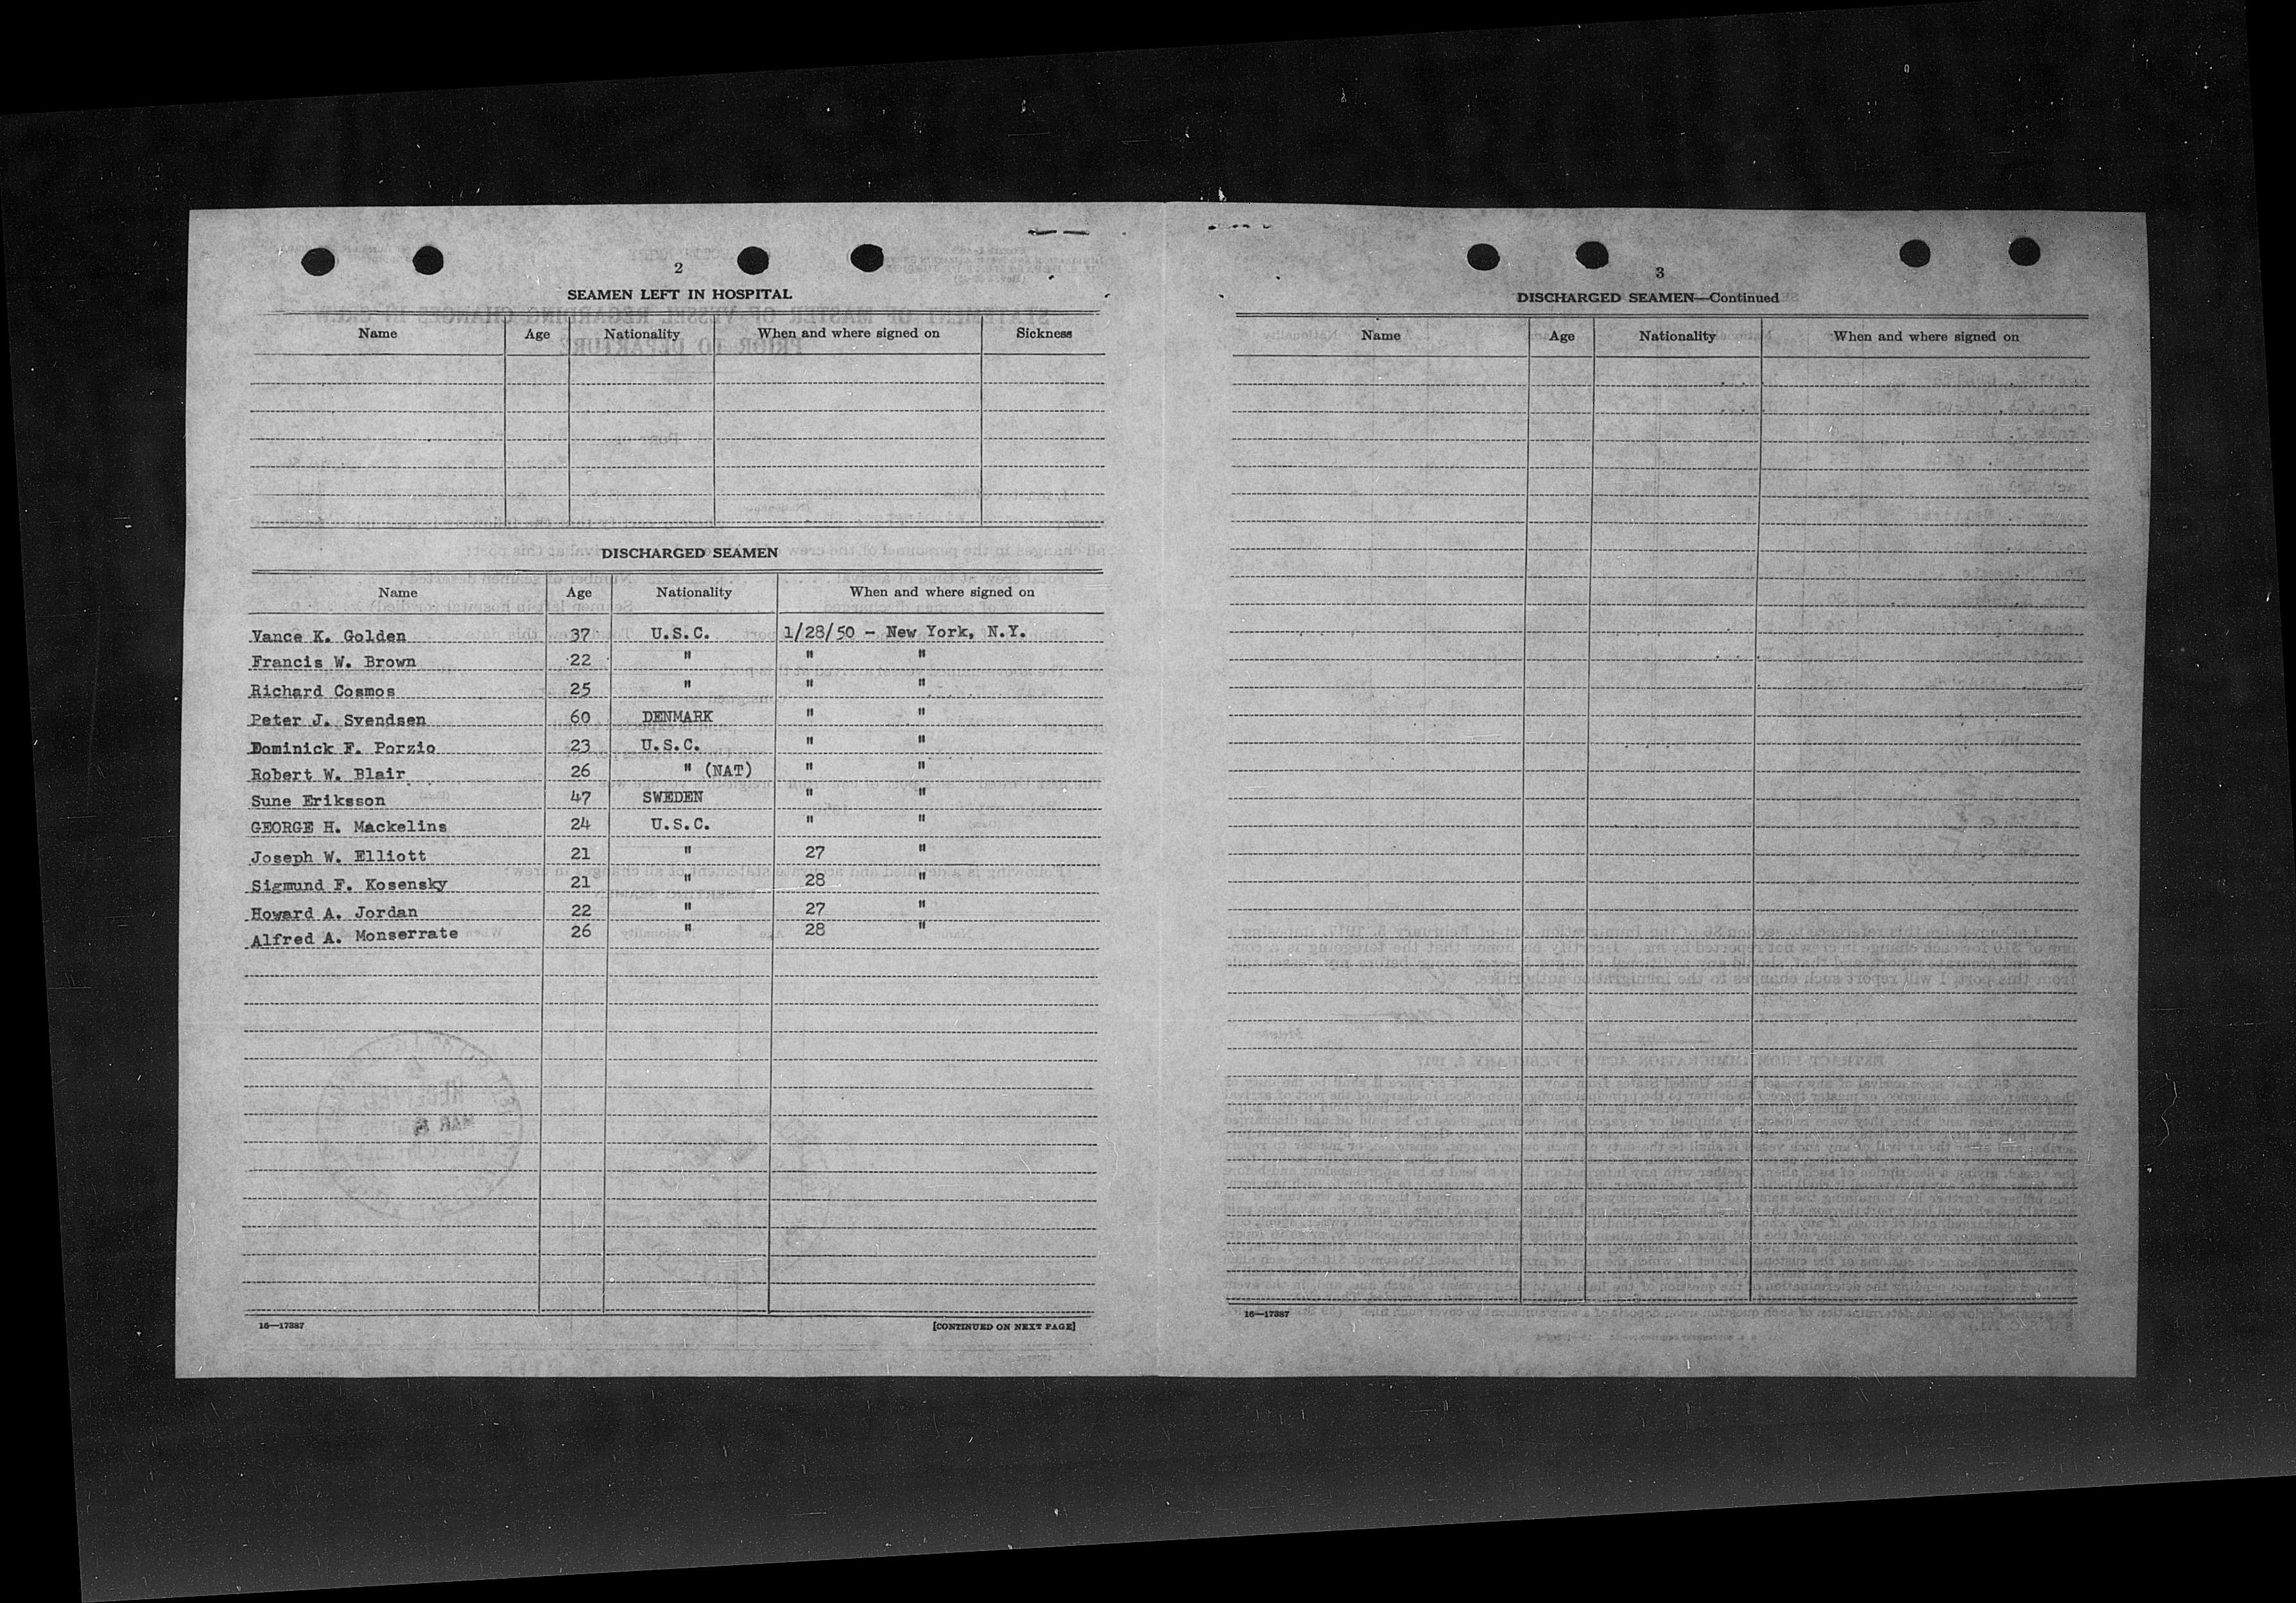 2
SEAMEN LEFT IN HOSPITAL
Name Age Nationality When and where signed on Sickness
DISCHARGED SEAMEN
Name Age Nationality When and where signed on
Vance K. Golden 37 U.S.C. 1/28/50 - New York, N.Y.
Francis W. Brown 22 " " "
Richard Cosmos 25 " " "
Peter J. Svendsen 60 DENMARK " "
Dominick F. Porzio 23 U.S.C. " "
Robert W. Blair 26 " (NAT) " "
Sune Eriksson 47 SWEDEN " "
GEORGE H. Mackelins 24 U.S.C. " "
Joseph W. Elliott 21 " 27 "
Sigmund F. Kosensky 21 " 28 "
Howard A. Jordan 22 " 27 "
Alfred A. Monserrate 26 " 28 "
16—17387
[CONTINUED ON NEXT PAGE]
3
DISCHARGED SEAMEN—Continued
Name Age Nationality When and where signed on
16—17387